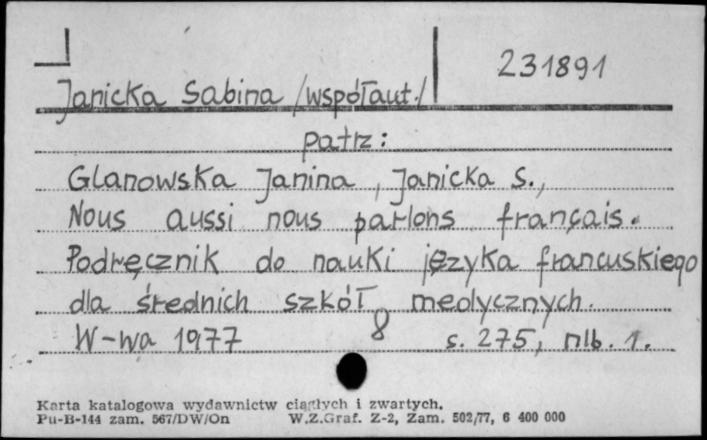 231891
Janicka Sabina /współaut./
patrz:
Glanowska Janina, Janicka S.,
Nous aussi nous parlons français.
Podręcznik do nauki języka francuskiego
dla średnich szkół medycznych.
W-wa 1977 8 s. 275, nlb. 1.
Karta katalogowa wydawnictw ciągłych i zwartych.
Pu-B-144 zam. 567/DW/On W.Z.Graf. Z-2, Zam. 502/77, 6 400 000